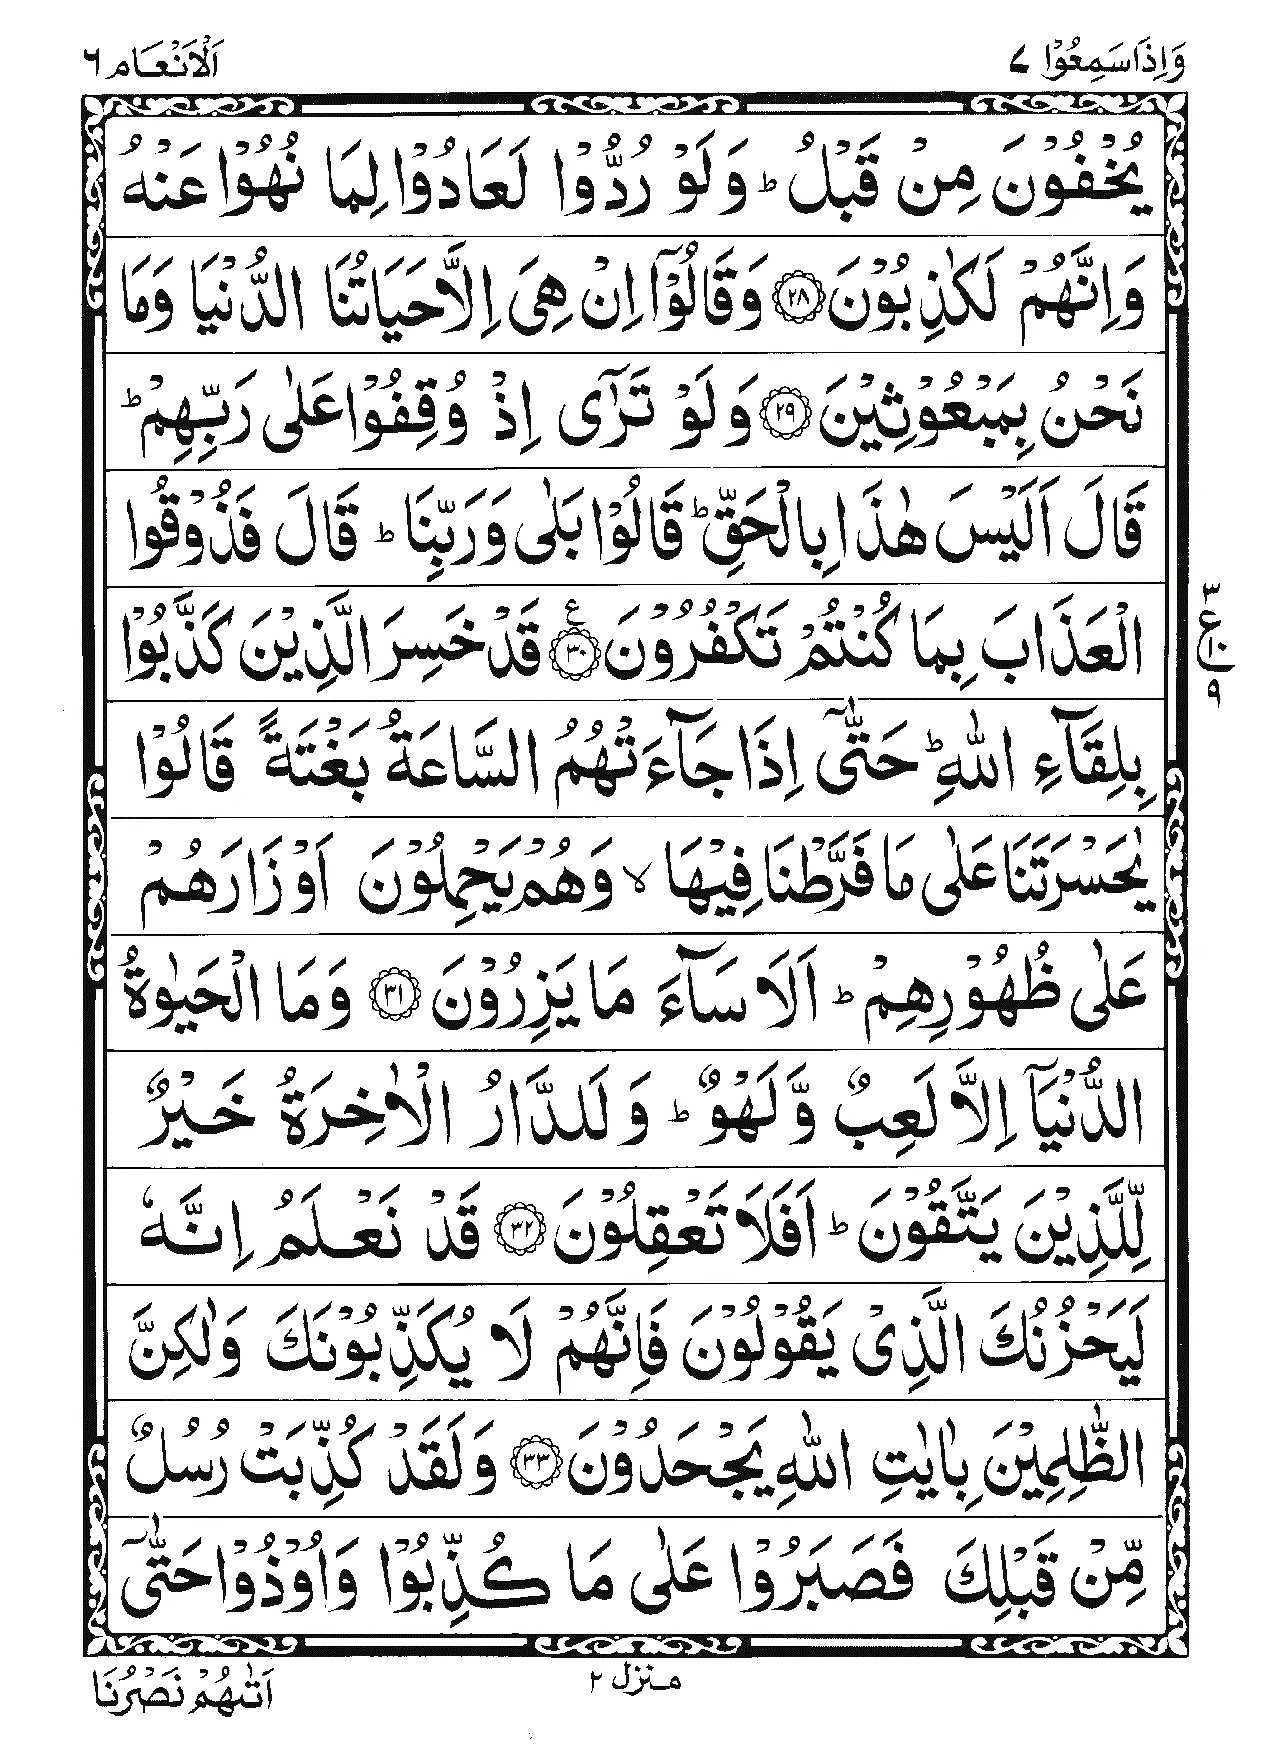 وَاِذَاسَمِعُوْا ۷
اَلْاَنْعَام ٦
يُخْفُوْنَ مِنْ قَبْلُ ؕ وَلَوْ رُدُّوْا لَعَادُوْا لِمَا نُهُوْا عَنْهُ
وَاِنَّهُمْ لَكٰذِبُوْنَ ۝۲۸ وَقَالُوْۤا اِنْ هِىَ اِلَّا حَيَاتُنَا الدُّنْيَا وَمَا
نَحْنُ بِمَبْعُوْثِيْنَ ۝۲۹ وَلَوْ تَرٰٓى اِذْ وُقِفُوْا عَلٰى رَبِّهِمْ ؕ
قَالَ اَلَيْسَ هٰذَا بِالْحَقِّ ؕ قَالُوْا بَلٰى وَرَبِّنَا ؕ قَالَ فَذُوْقُوا
الْعَذَابَ بِمَا كُنْتُمْ تَكْفُرُوْنَ ۝۳۰ ع قَدْ خَسِرَ الَّذِيْنَ كَذَّبُوْا
۳
ع
۱۰
۹
بِلِقَآءِ اللّٰهِ ؕ حَتّٰۤى اِذَا جَآءَتْهُمُ السَّاعَةُ بَغْتَةً قَالُوْا
يٰحَسْرَتَنَا عَلٰى مَا فَرَّطْنَا فِيْهَا ۙ وَهُمْ يَحْمِلُوْنَ اَوْزَارَهُمْ
عَلٰى ظُهُوْرِهِمْ ؕ اَلَا سَآءَ مَا يَزِرُوْنَ ۝۳۱ وَمَا الْحَيٰوةُ
الدُّنْيَاۤ اِلَّا لَعِبٌ وَّلَهْوٌ ؕ وَلَلدَّارُ الْاٰخِرَةُ خَيْرٌ
لِّلَّذِيْنَ يَتَّقُوْنَ ؕ اَفَلَا تَعْقِلُوْنَ ۝۳۲ قَدْ نَعْلَمُ اِنَّهٗ
لَيَحْزُنُكَ الَّذِىْ يَقُوْلُوْنَ فَاِنَّهُمْ لَا يُكَذِّبُوْنَكَ وَلٰكِنَّ
الظّٰلِمِيْنَ بِاٰيٰتِ اللّٰهِ يَجْحَدُوْنَ ۝۳۳ وَلَقَدْ كُذِّبَتْ رُسُلٌ
مِّنْ قَبْلِكَ فَصَبَرُوْا عَلٰى مَا كُذِّبُوْا وَاُوْذُوْا حَتّٰۤى
منزل ۲
اَتٰىهُمْ نَصْرُنَا